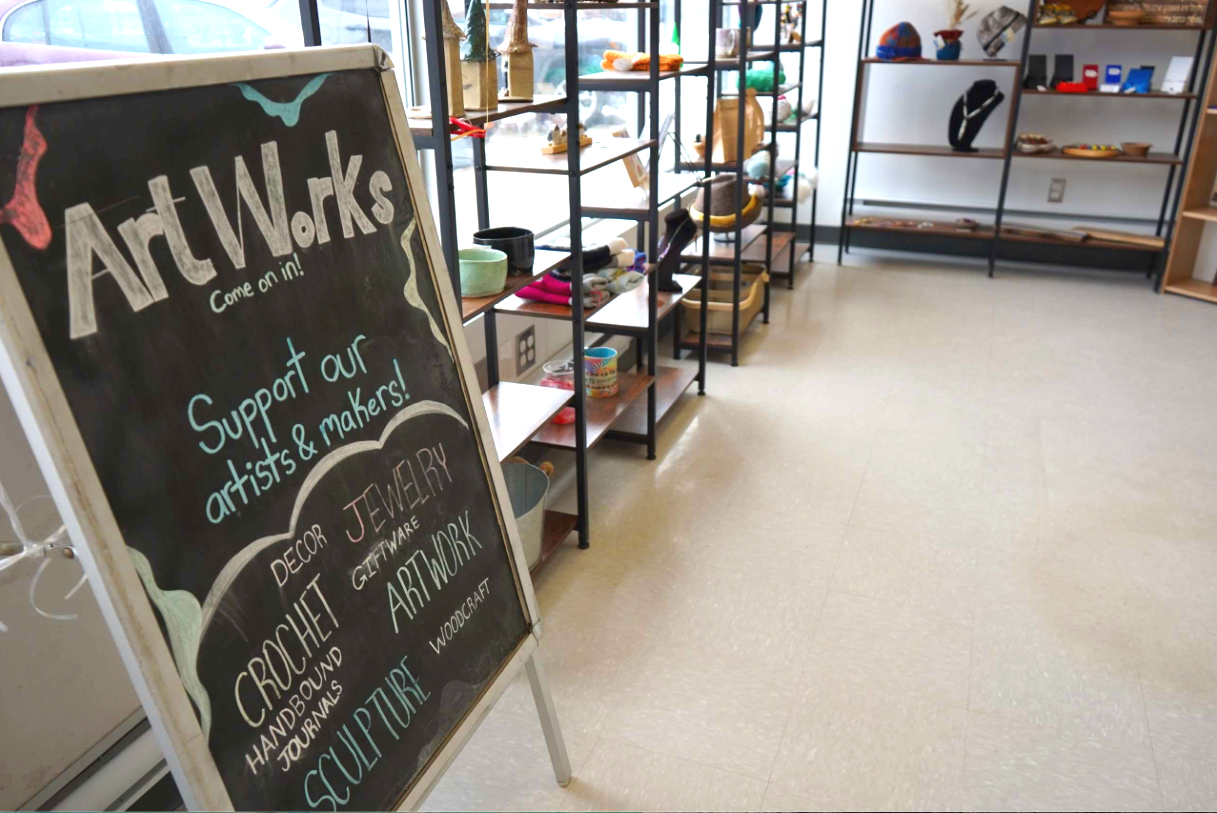 ArtWorks
Come on in!
Support our
artists & makers!
DECOR
JEWELRY
GIFTWARE
ARTWORK
CROCHET
WOODCRAFT
HANDBOUND
JOURNALS
SCULPTURE